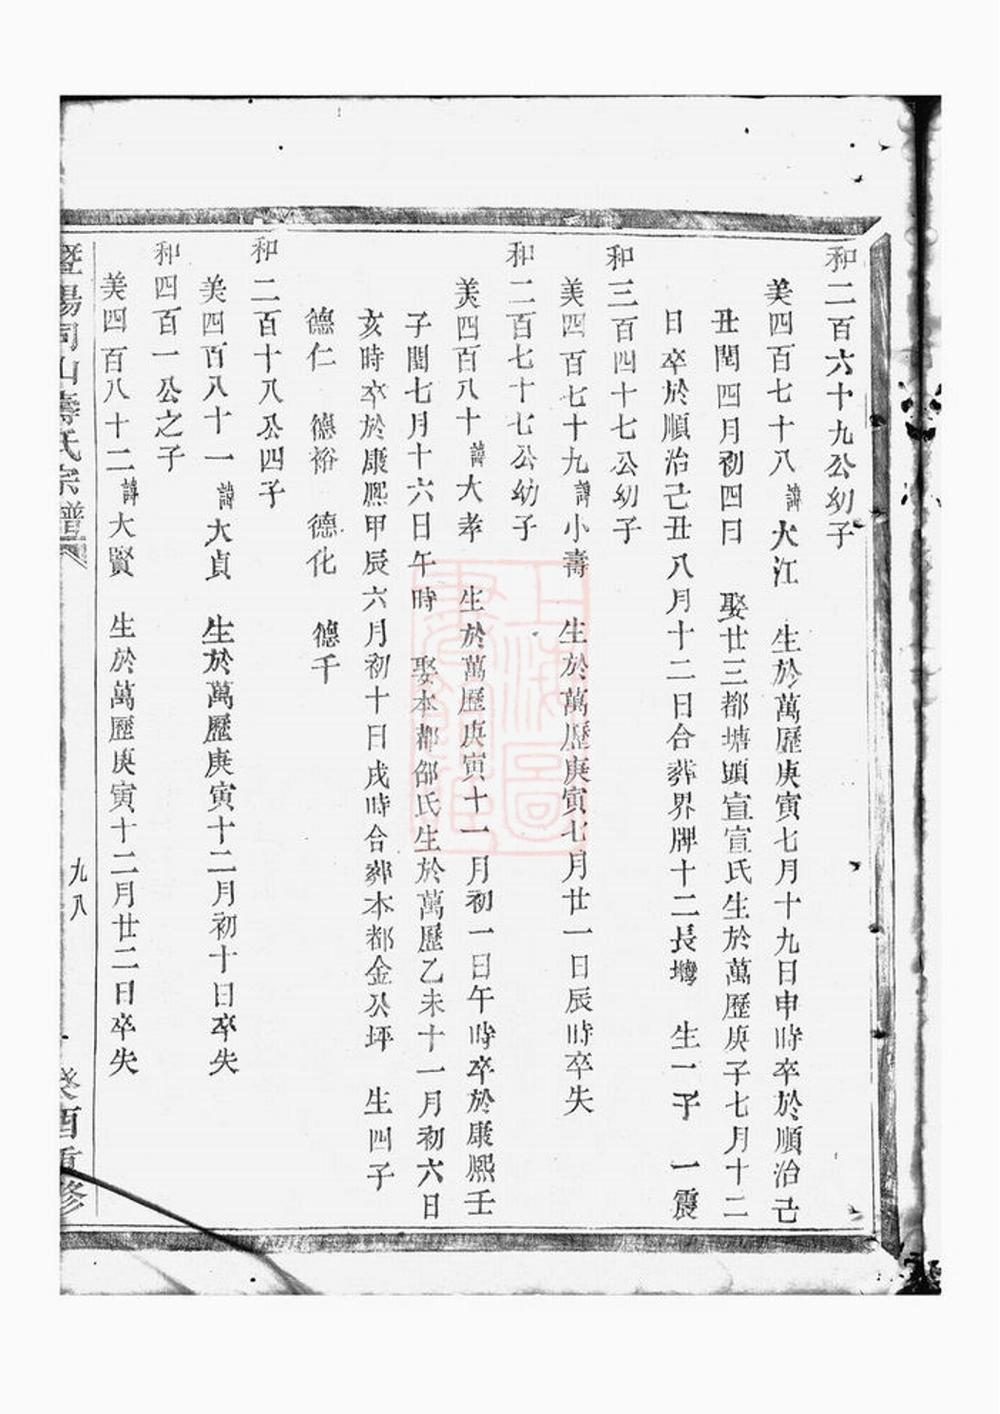 和二百六十九公幼子
美四百七十八諱大江　生於萬歷庚寅七月十九日申時卒於順治己
丑閏四月初四日　娶廿三都塘頭宣宣氏生於萬歷庚子七月十二
日卒於順治己丑八月十二日合葬界牌十二長塆　生一子　一震
和三百四十七公幼子
美四百七十九諱小壽　生於萬歷庚寅七月廿一日辰時卒失
和二百七十七公幼子
美四百八十諱大孝　生於萬歷庚寅十一月初一日午時卒於康熙壬
子閏七月十六日午時　娶本都邵氏生於萬歷乙未十一月初六日
亥時卒於康熙甲辰六月初十日戌時合葬本都金公坪　生四子
德仁　德裕　德化　德千
和二百十八公四子
美四百八十一諱大貞　生於萬歷庚寅十二月初十日卒失
和四百一公之子
美四百八十二諱大賢　生於萬歷庚寅十二月廿二日卒失
暨陽同山壽氏宗譜　九八　癸酉重修
上海圖書館藏